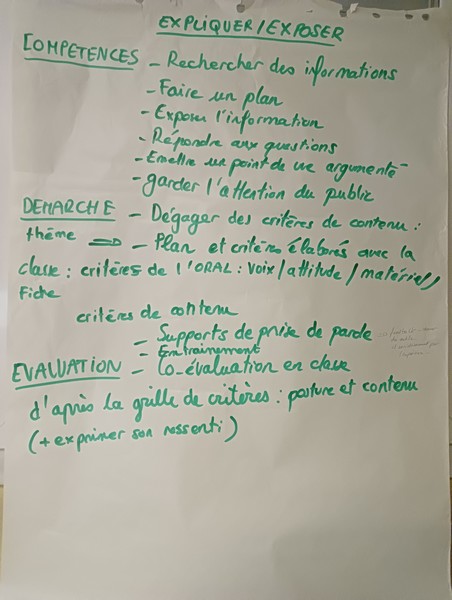 EXPLIQUER/EXPOSER
COMPETENCES - Rechercher des informations
- Faire un plan
- Exposer l'information
- Répondre aux questions
- Emettre un point de vue argumenté
- garder l'attention du public
DEMARCHE - Dégager des critères de contenu :
thème => - Plan et critères élaborés avec la
classe : critères de l'ORAL : voix / attitude / matériel /
Fiche
critères de contenu
- Supports de prise de parole
- Entrainement
EVALUATION - Co-évaluation en classe
d'après la grille de critères : posture et contenu
(+ exprimer son ressenti)